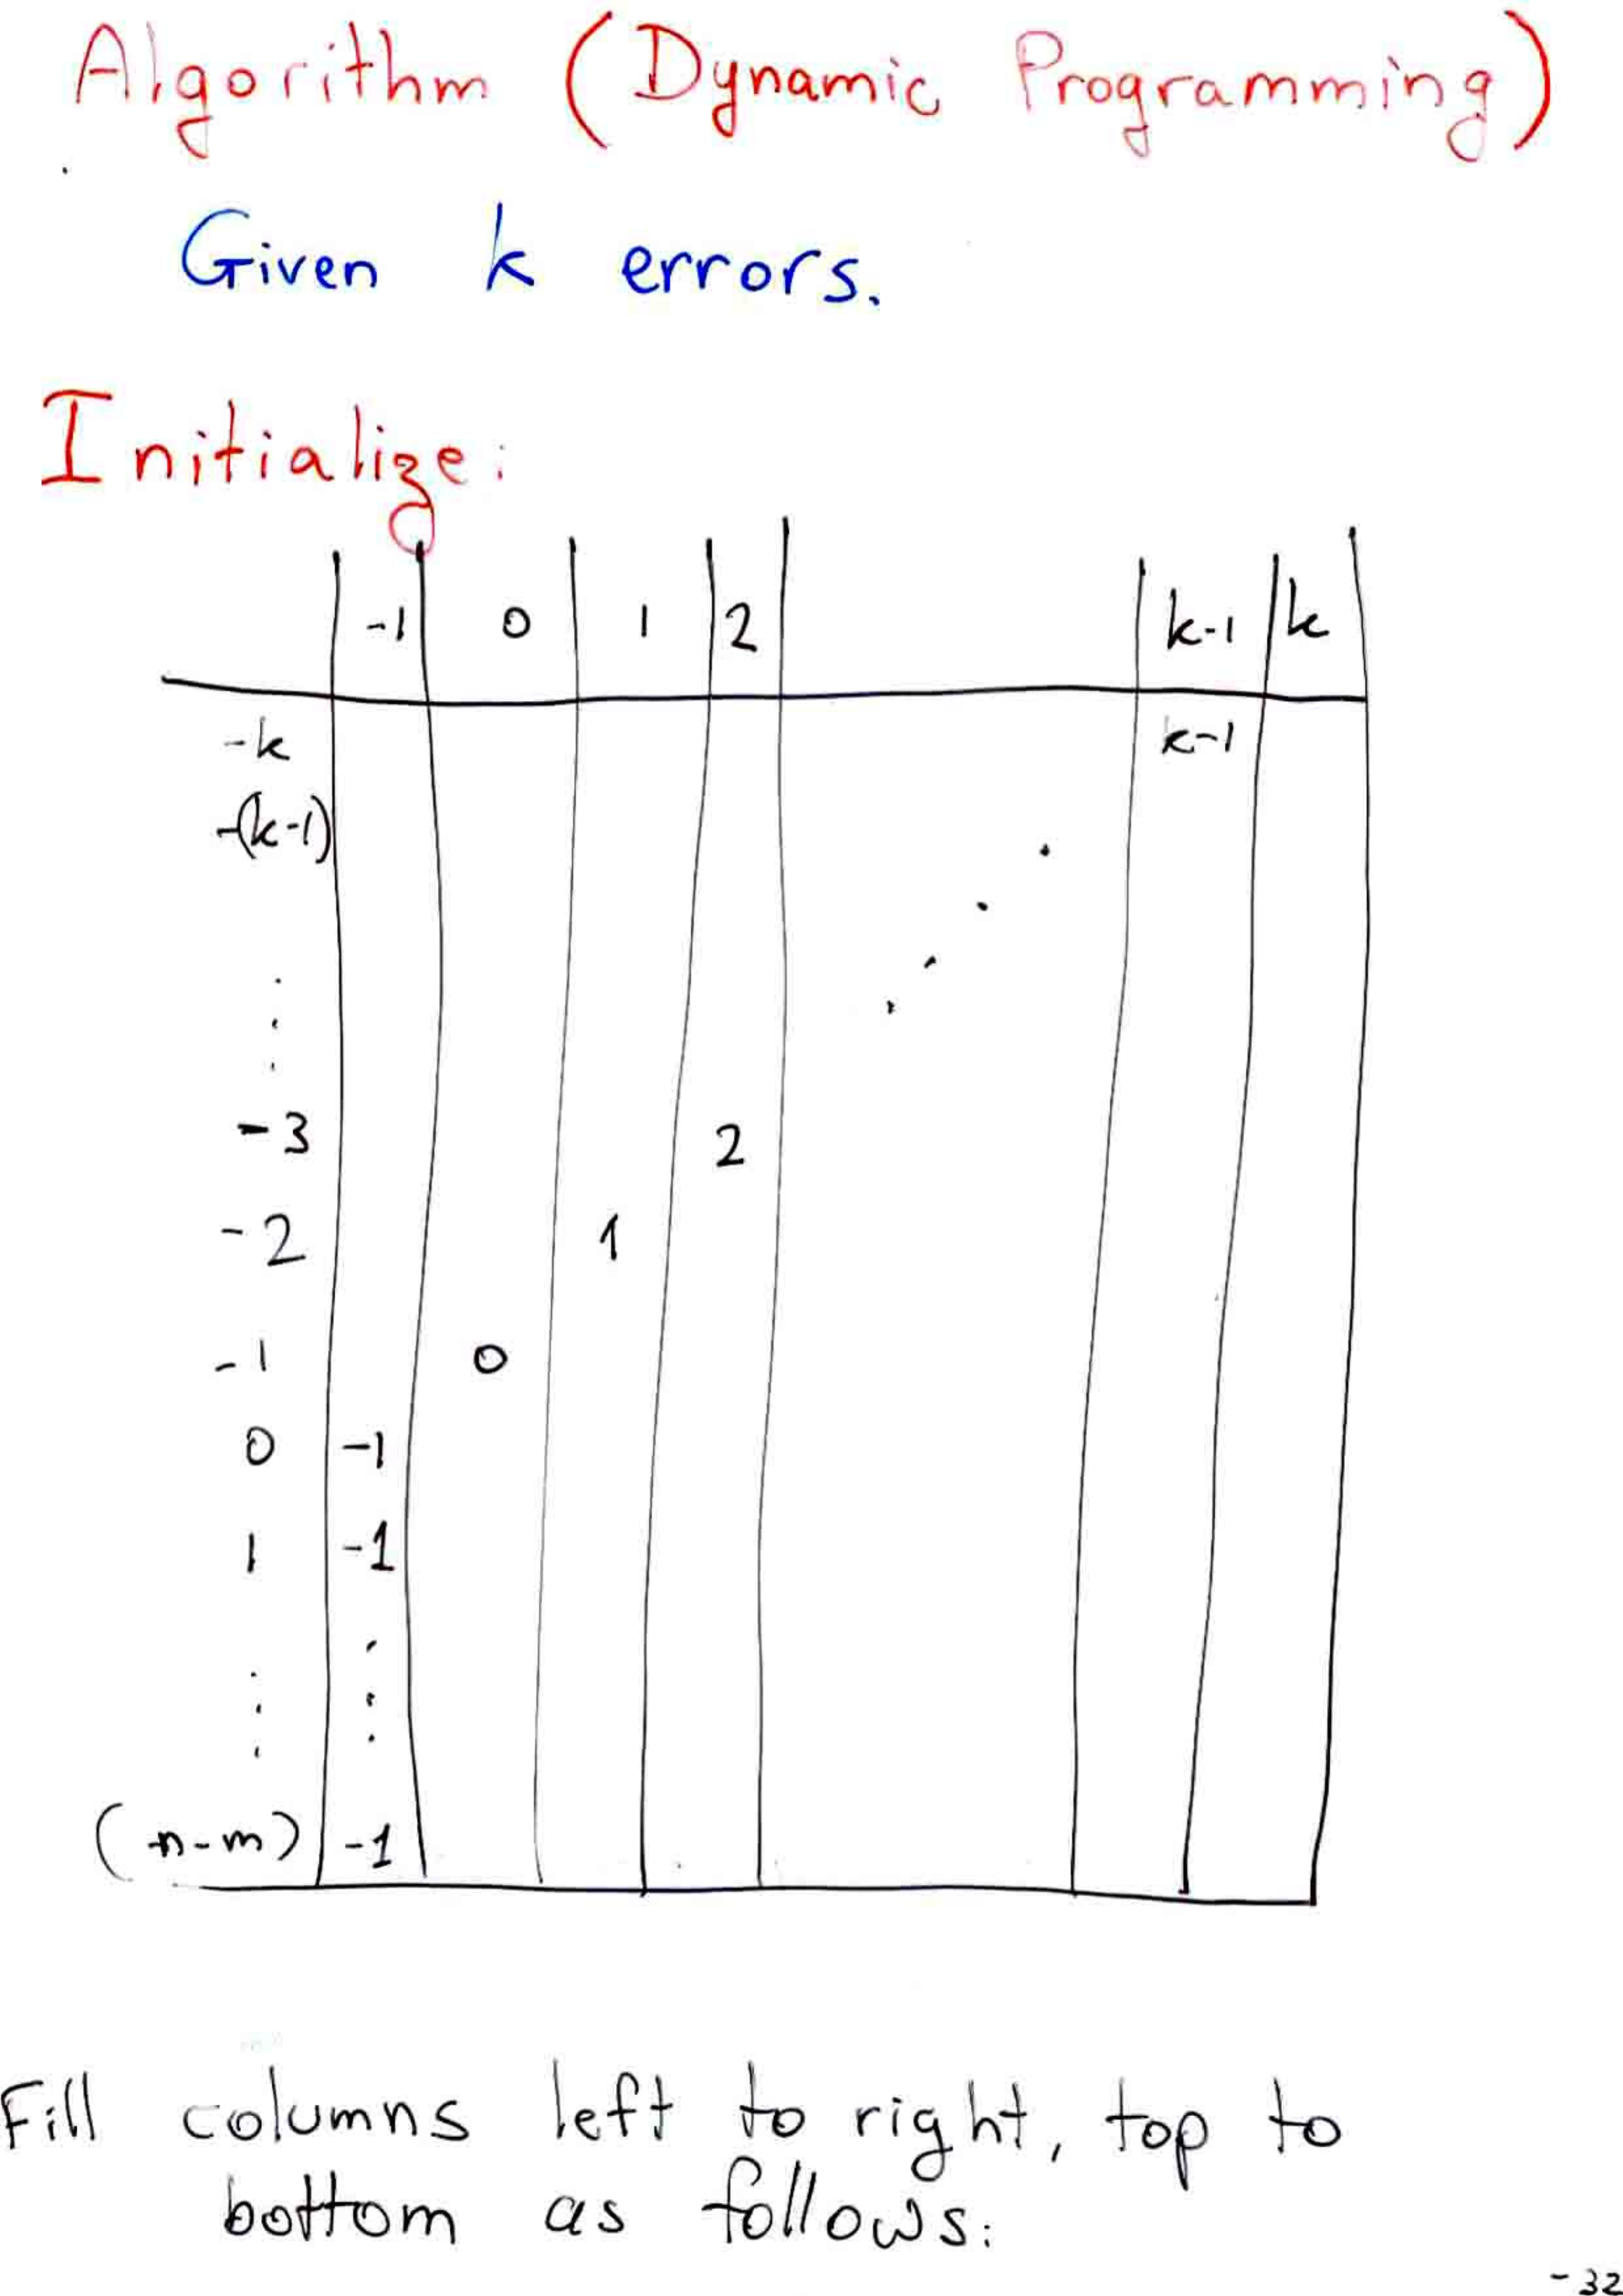 Algorithm (Dynamic Programming)
Given k errors.
Initialize:
-1 0 1 2 k-1 k
-k k-1
-(k-1)
-3 2
-2 1
-1 0
0 -1
1 -1
(n-m) -1
Fill columns left to right, top to
bottom as follows:
-32